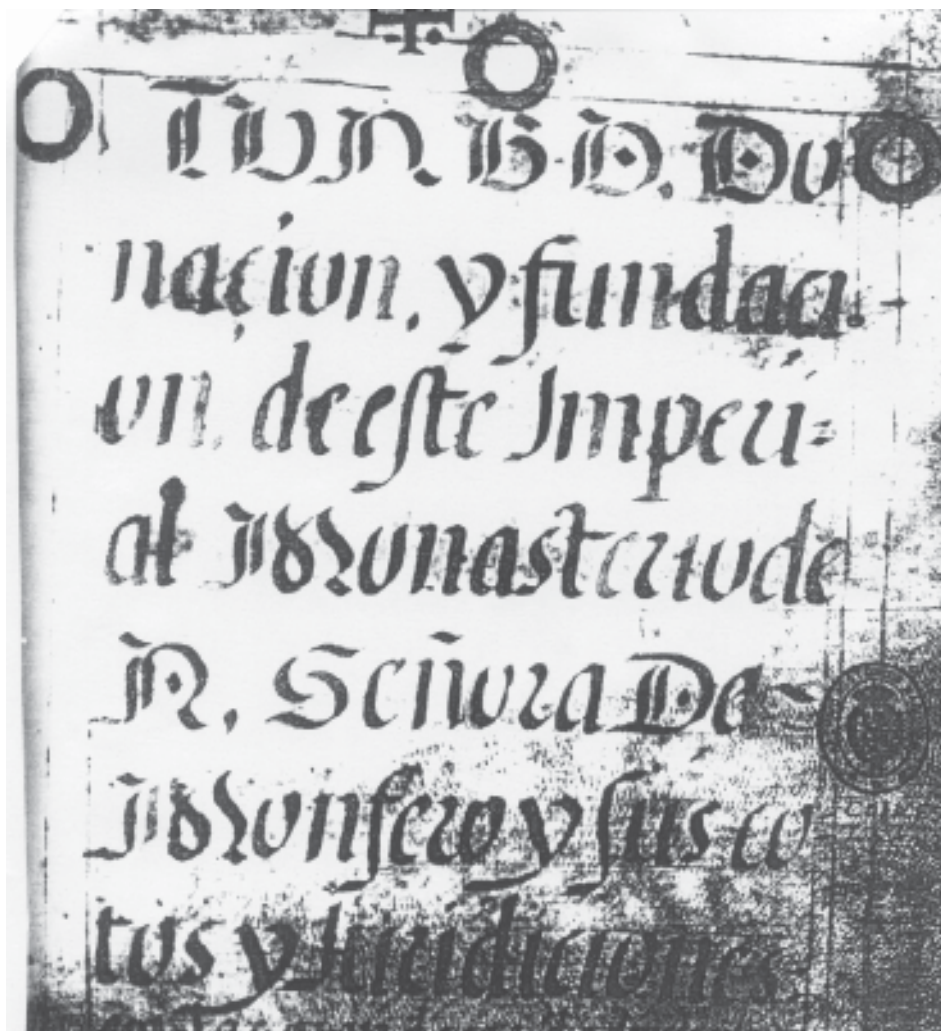 TVN. B. D. Do
naçion, y fundaci
on, de este Imperi=
al Monasterio de
N. Señora De
Monfero y sus co
tos y Iuridiciones.